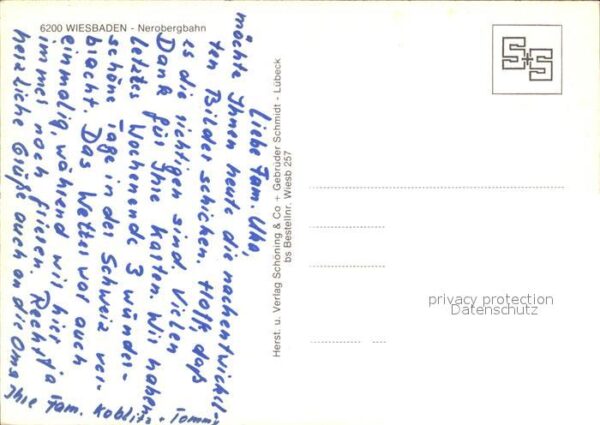 6200 WIESBADEN - Nerobergbahn
Liebe Fam. Uhe,
möchte Ihnen heute die nachentwickel-
ten Bilder schicken. Hoff, daß
es die richtigen sind. Vielen
Dank für Ihre Karten. Wir haben
letztes Wochenende 3 wunder-
schöne Tage in der Schweiz ver-
bracht. Das Wetter war auch
einmalig, während wir hier ja
immer noch frieren. Recht
herzliche Grüße auch an die Oma
Ihre Fam. Koblitz + Tommy
Herst. u. Verlag Schöning & Co + Gebrüder Schmidt - Lübeck
bs Bestellnr. Wiesb 257
S+S
privacy protection
Datenschutz